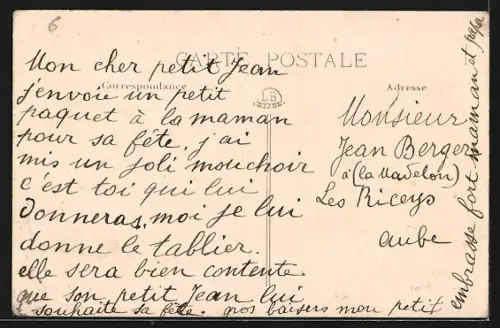 6
CARTE POSTALE
Correspondance
Adresse
LB
Mon cher petit Jean
j'envoie un petit
paquet à la maman
pour sa fête, j'ai
mis un joli mouchoir
c'est toi qui lui
donneras, moi je lui
donne le tablier.
elle sera bien contente
que son petit Jean lui
souhaite sa fête. gros baisers mon petit
embrasse fort maman et papa
Monsieur
Jean Berger
à (la Madelon)
Les Riceys
aube